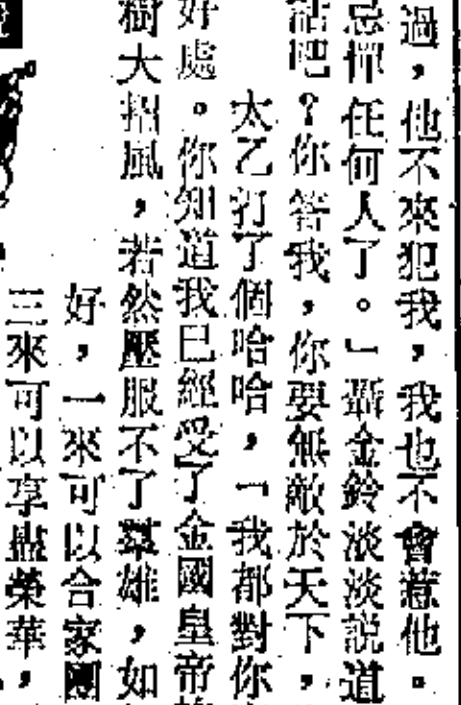 過，他不來犯我，我也不會惹他。
忌憚任何人了。」聶金鈴淡淡説道
話吧？你答我，你要無敵於天下，
太乙打了個哈哈，「我都對你
好處。你知道我已經受了金國皇帝
樹大招風，若然壓服不了羣雄，如
好，一來可以合家團
三來可以享盡榮華，